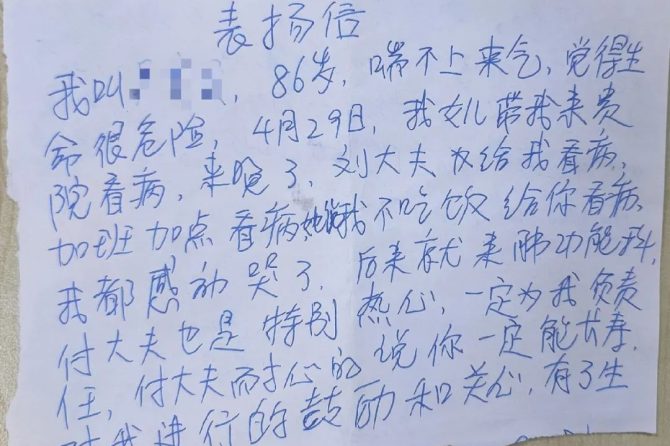 表扬信
我叫，86岁，喘不上来气，觉得生
命很危险，4月29日，我女儿带我来贵
院看病，来晚了，刘大夫为给我看病，
加班加点看病她说我不吃饭给你看病，
我都感动哭了，后来就来肺功能科，
付大夫也是特别热心，一定为我负责
任，付大夫耐心的说你一定能长寿，
对我进行的鼓励和关心，有了生